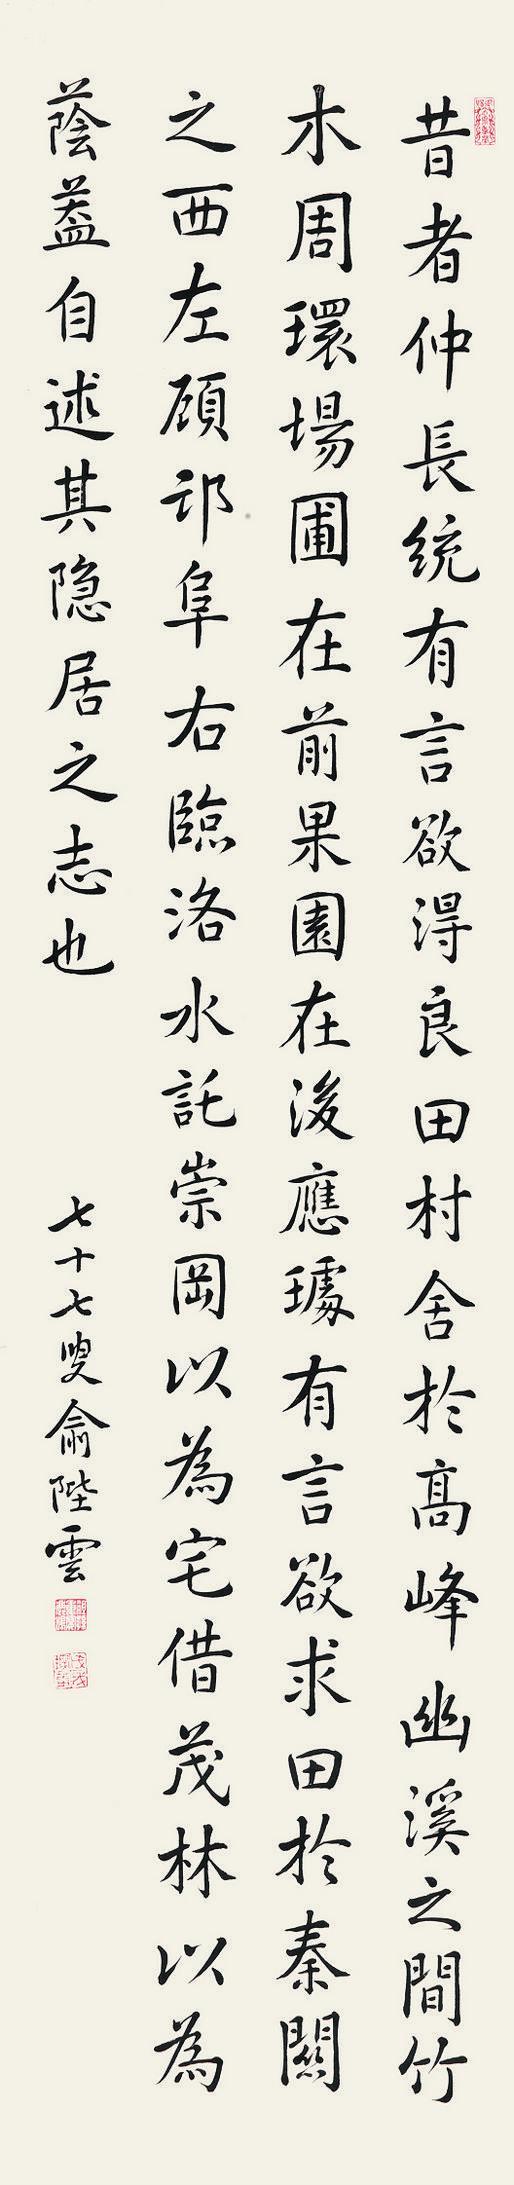 昔者仲長統有言欲得良田村舍於高峰幽溪之間竹
木周環場圃在前果園在後應璩有言欲求田於秦關
之西左顧邙阜右臨洛水託崇岡以為宅借茂林以為
蔭蓋自述其隐居之志也
七十七叟俞陛雲